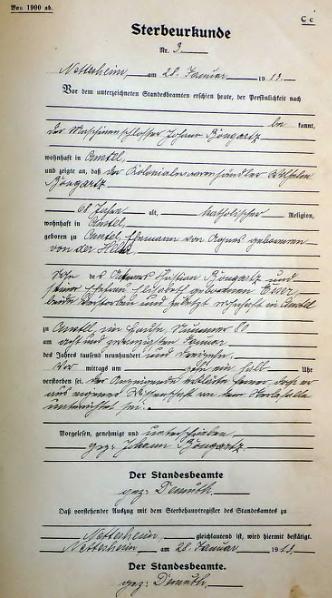 Von 1900 ab.
C c
Sterbeurkunde
Nr. 3
Nettersheim, am 28. Januar 1913.
Vor dem unterzeichneten Standesbeamten erschien heute, der Persönlichkeit nach
be kannt,
der Maschinenschlosser Johann Böngartz
wohnhaft in
und zeigte an, daß der Kolonialwarenhändler Wilhelm
Böngartz
68 Jahre alt, katholischer Religion,
wohnhaft in
geboren zu Ehemann von Agnes geborenen
von der
Sohn des Christian Böngartz und
seiner Ehefrau geborenen
beide verstorben und zuletzt wohnhaft in
zu im Hause Nummer 60
am acht und zwanzigsten Januar
des Jahres tausend neunhundert und dreizehn,
Vor mittags um zehn ein halb Uhr
verstorben sei. Der Anzeigende erklärte ferner, daß er
aus eigener Wissenschaft von dem Sterbefalle
unterrichtet sei.
Vorgelesen, genehmigt und unterschrieben
gez: Johann Böngartz.
Der Standesbeamte
gez: Demuth.
Daß vorstehender Auszug mit dem Sterbehauptregister des Standesamtes zu
Nettersheim gleichlautend ist, wird hiermit bestätigt.
Nettersheim, am 28. Januar 1913.
Der Standesbeamte.
gez: Demuth.